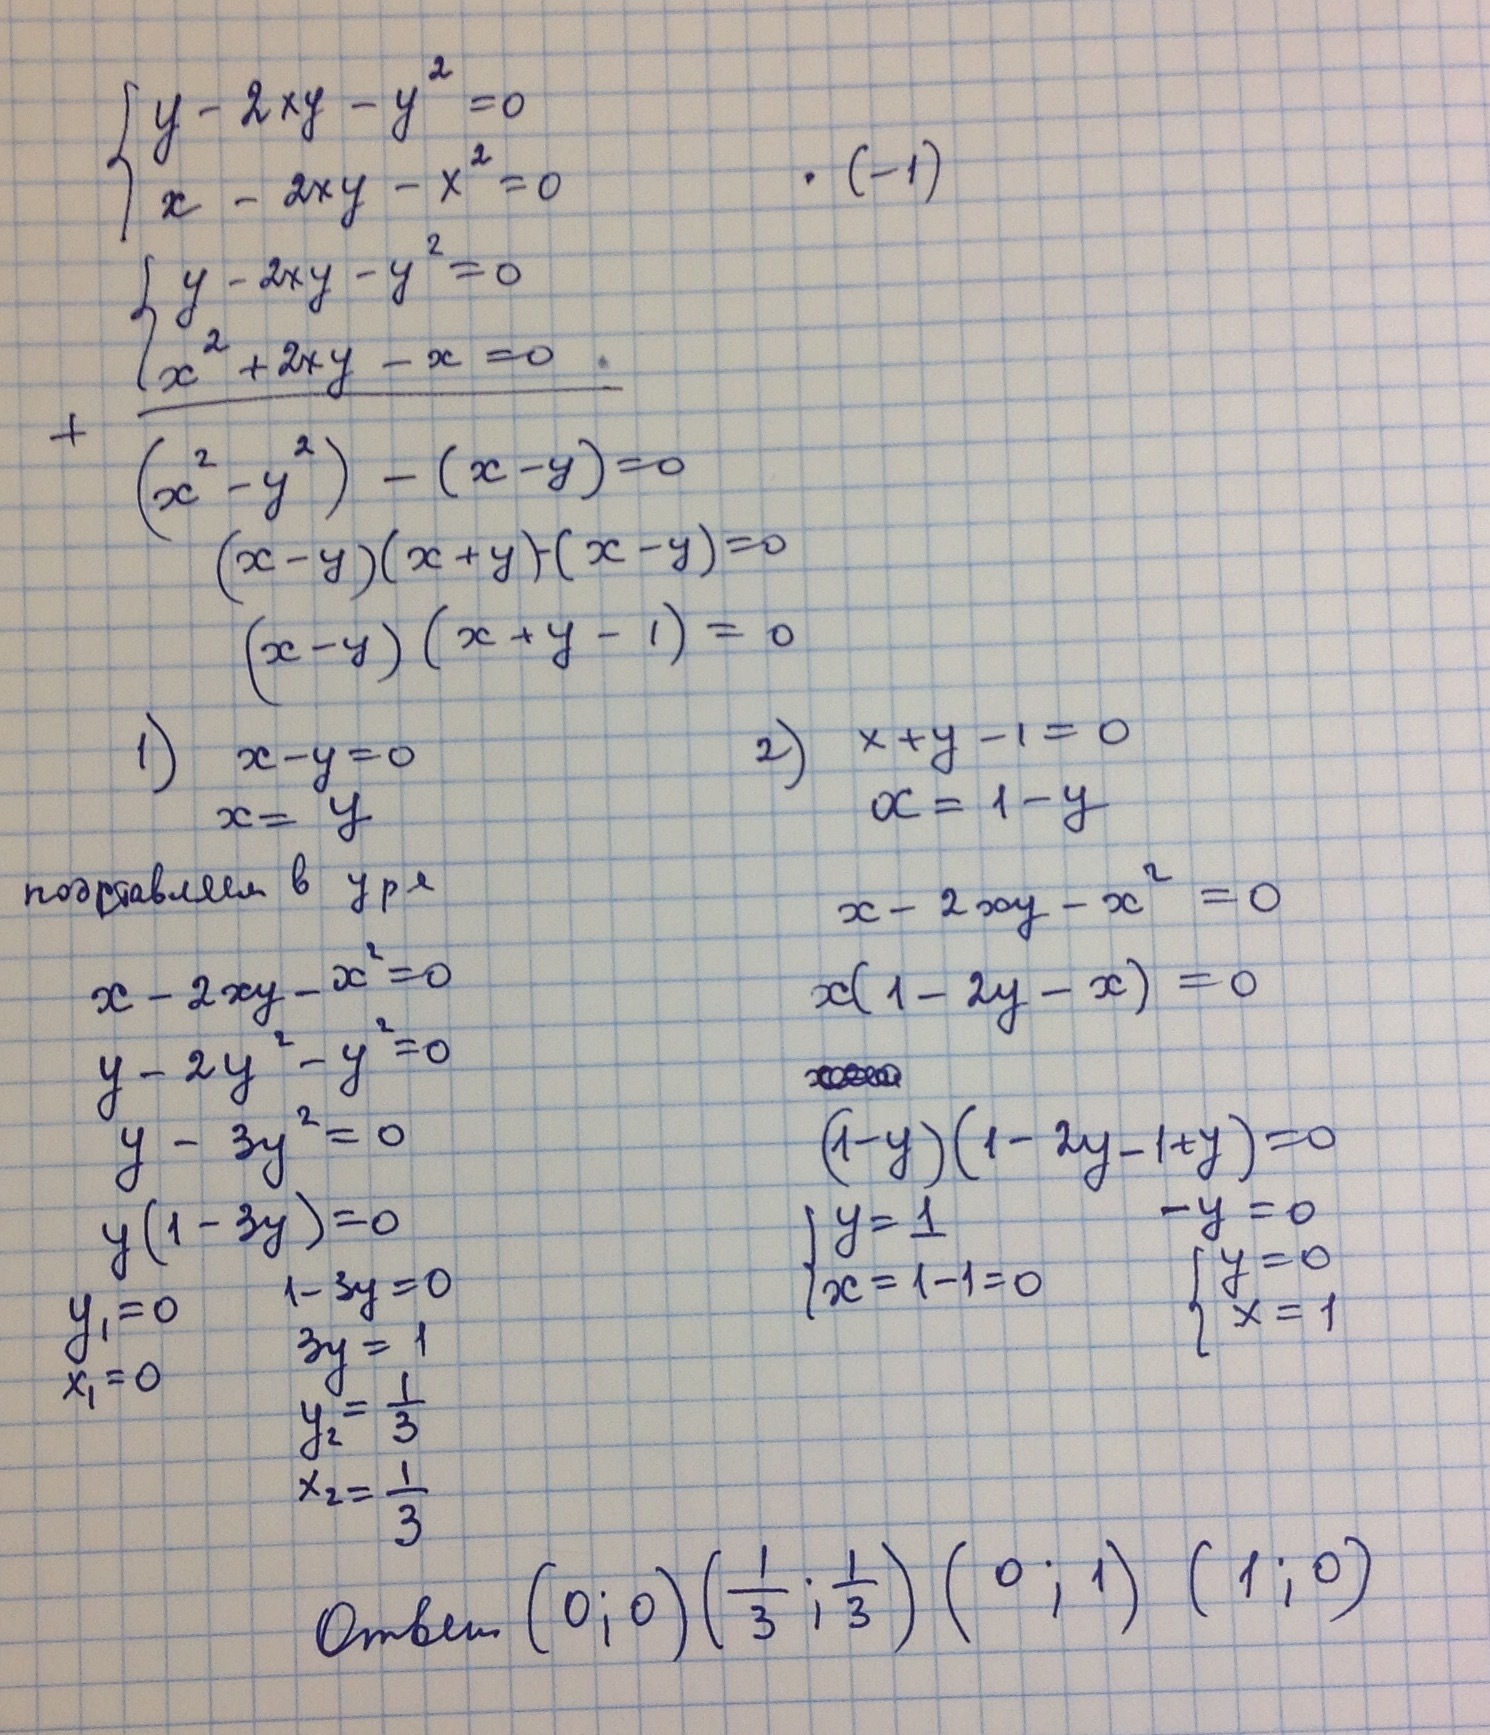 y - 2xy - y² = 0
x - 2xy - x² = 0 · (-1)
y - 2xy - y² = 0
x² + 2xy - x = 0
+
(x² - y²) - (x - y) = 0
(x - y)(x + y) - (x - y) = 0
(x - y)(x + y - 1) = 0
1) x - y = 0
x = y
подставляем в ур е
x - 2xy - x² = 0
y - 2y² - y² = 0
y - 3y² = 0
y(1 - 3y) = 0
y₁ = 0
x₁ = 0
1 - 3y = 0
3y = 1
y₂ = 1/3
x₂ = 1/3
2) x + y - 1 = 0
x = 1 - y
x - 2xy - x² = 0
x(1 - 2y - x) = 0
(1 - y)(1 - 2y - 1 + y) = 0
y = 1
x = 1 - 1 = 0
-y = 0
y = 0
x = 1
Ответ (0; 0) (1/3; 1/3) (0; 1) (1; 0)